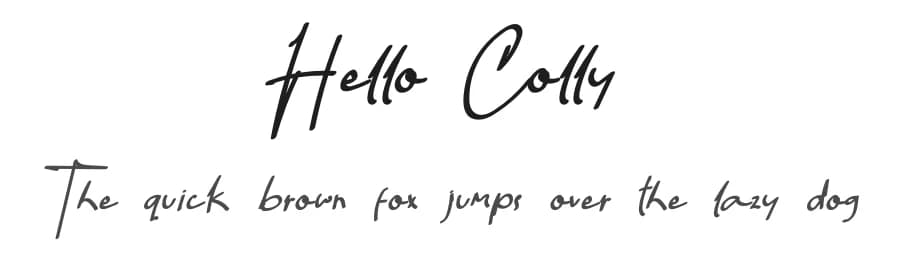 Hello Colly
The quick brown fox jumps over the lazy dog